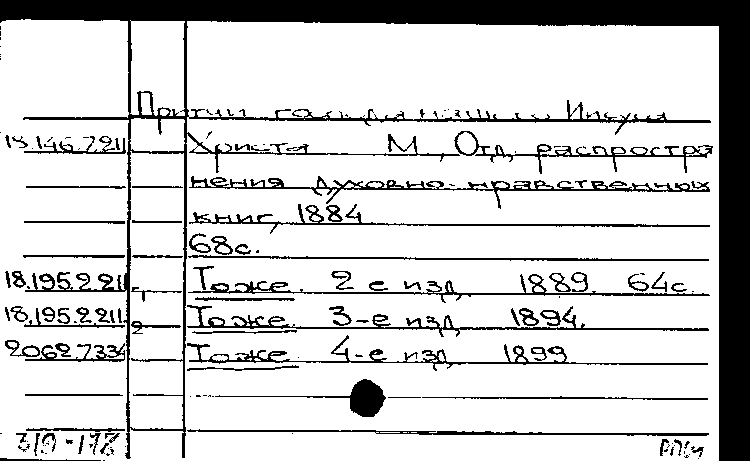 Притчи господа нашего Иисуса
18.146.7.211 Христа М., Отд. распростра
нения духовно-нравственных
книг, 1884
68с.
18.195.2.211 1 Тоже. 2 е изд. 1889. 64с.
18.195.2.211 2 Тоже. 3-е изд. 1894.
20.62.7.334 Тоже. 4-е изд. 1899.
319-178